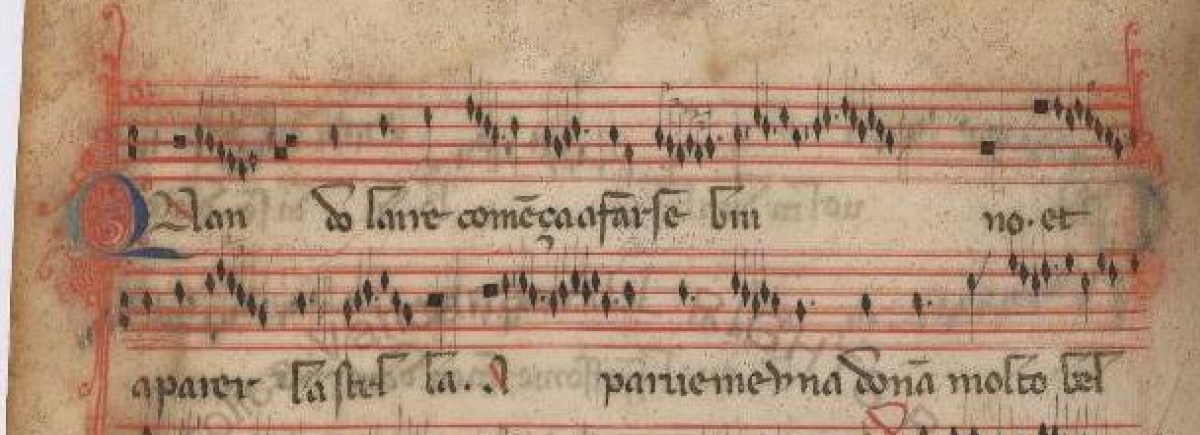 Quan do laire comēça a farse bru no· et
aparer la stel la. A paruemevna donā molto bel